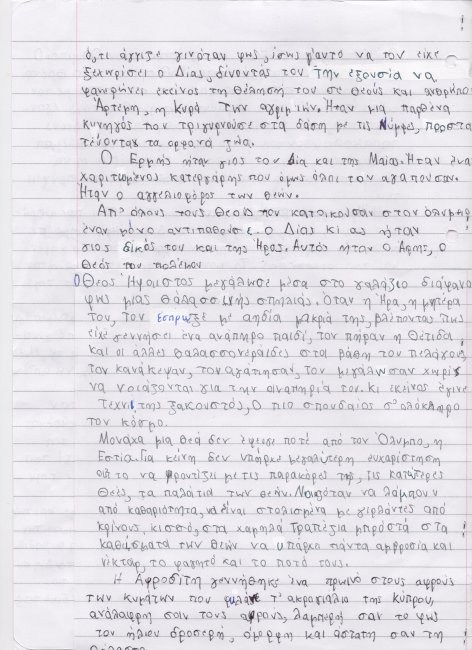 ό,τι άγγιζε γινόταν φως, ίσως γι'αυτό να τον είχε
ξεχωρίσει ο Δίας, δίνοντας του την εξουσία να
φανερώνει εκείνος τη θέλησή του σε θεούς και ανθρώπο
Άρτεμη, η κυρά των αγριμιών. Ήταν μια παρθένα
κυνηγός που τριγυρνούσε στα δάση με τις Νύμφες, προστα
τεύοντας τα ορφανά ζώα.
Ο Ερμής ήταν γιος του Δία και της Μαίας. Ήταν ένα
χαριτωμένος κατεργάρης που όμως όλοι τον αγαπούσαν.
Ήταν ο αγγελιοφόρος των θεών.
Απ' όλους τους θεούς που κατοικούσαν στον όλυμπο
έναν μόνο αντιπαθούσε ο Δίας κι ας ήταν
γιος δικός του και της Ήρας. Αυτός ήταν ο Άρης, ο
Θεός του πολέμου
Ο Θεός Ήφαιστος μεγάλωσε μέσα στο γαλάζιο διάφανο
φως μιας θαλασσινής σπηλιάς. Όταν η Ήρα, η μητέρα
του, τον έσπρωξε με αηδία μακριά της, βλέποντας πως
είχε γεννήσει ένα ανάπηρο παιδί, τον πήραν η Θέτιδα
και οι άλλες θαλασσονεράιδες στα βάθη του πελάγους,
τον κανάκεψαν, τον αγάπησαν, τον μεγάλωσαν χωρίς
να νοιάζονται για την αναπηρία του. κι εκείνος έγινε
τεχνίτης ξακουστός, Ο πιο σπουδαίος σ' ολόκληρο
τον κόσμο.
Μονάχα μια θεά δεν έφευγε ποτέ από τον Όλυμπο, η
Εστία. Για κείνη δεν υπήρχε μεγαλύτερη ευχαρίστηση
από το να φροντίζει με τις παρακόρες της, τις κατώτερες
Θεές, τα παλάτια των θεών. Νοιαζόταν να λάμπουν
από καθαριότητα, να είναι στολισμένα με γιρλάντες από
κρίνους, κισσό, στα χαμηλά τραπέζια μπροστά στα
καθίσματα των θεών να υπάρχει πάντα αμβροσία και
νέκταρ, το φαγητό και το ποτό τους.
Η Αφροδίτη γεννήθηκε ένα πρωινό στους αφρούς
των κυμάτων που φιλάνε τ' ακρογιάλια της κύπρου,
ανάλαφρη σαν τους αφρούς, λαμπερή σαν το φως
του ήλιου δροσερή, όμορφη και άστατη σαν τη